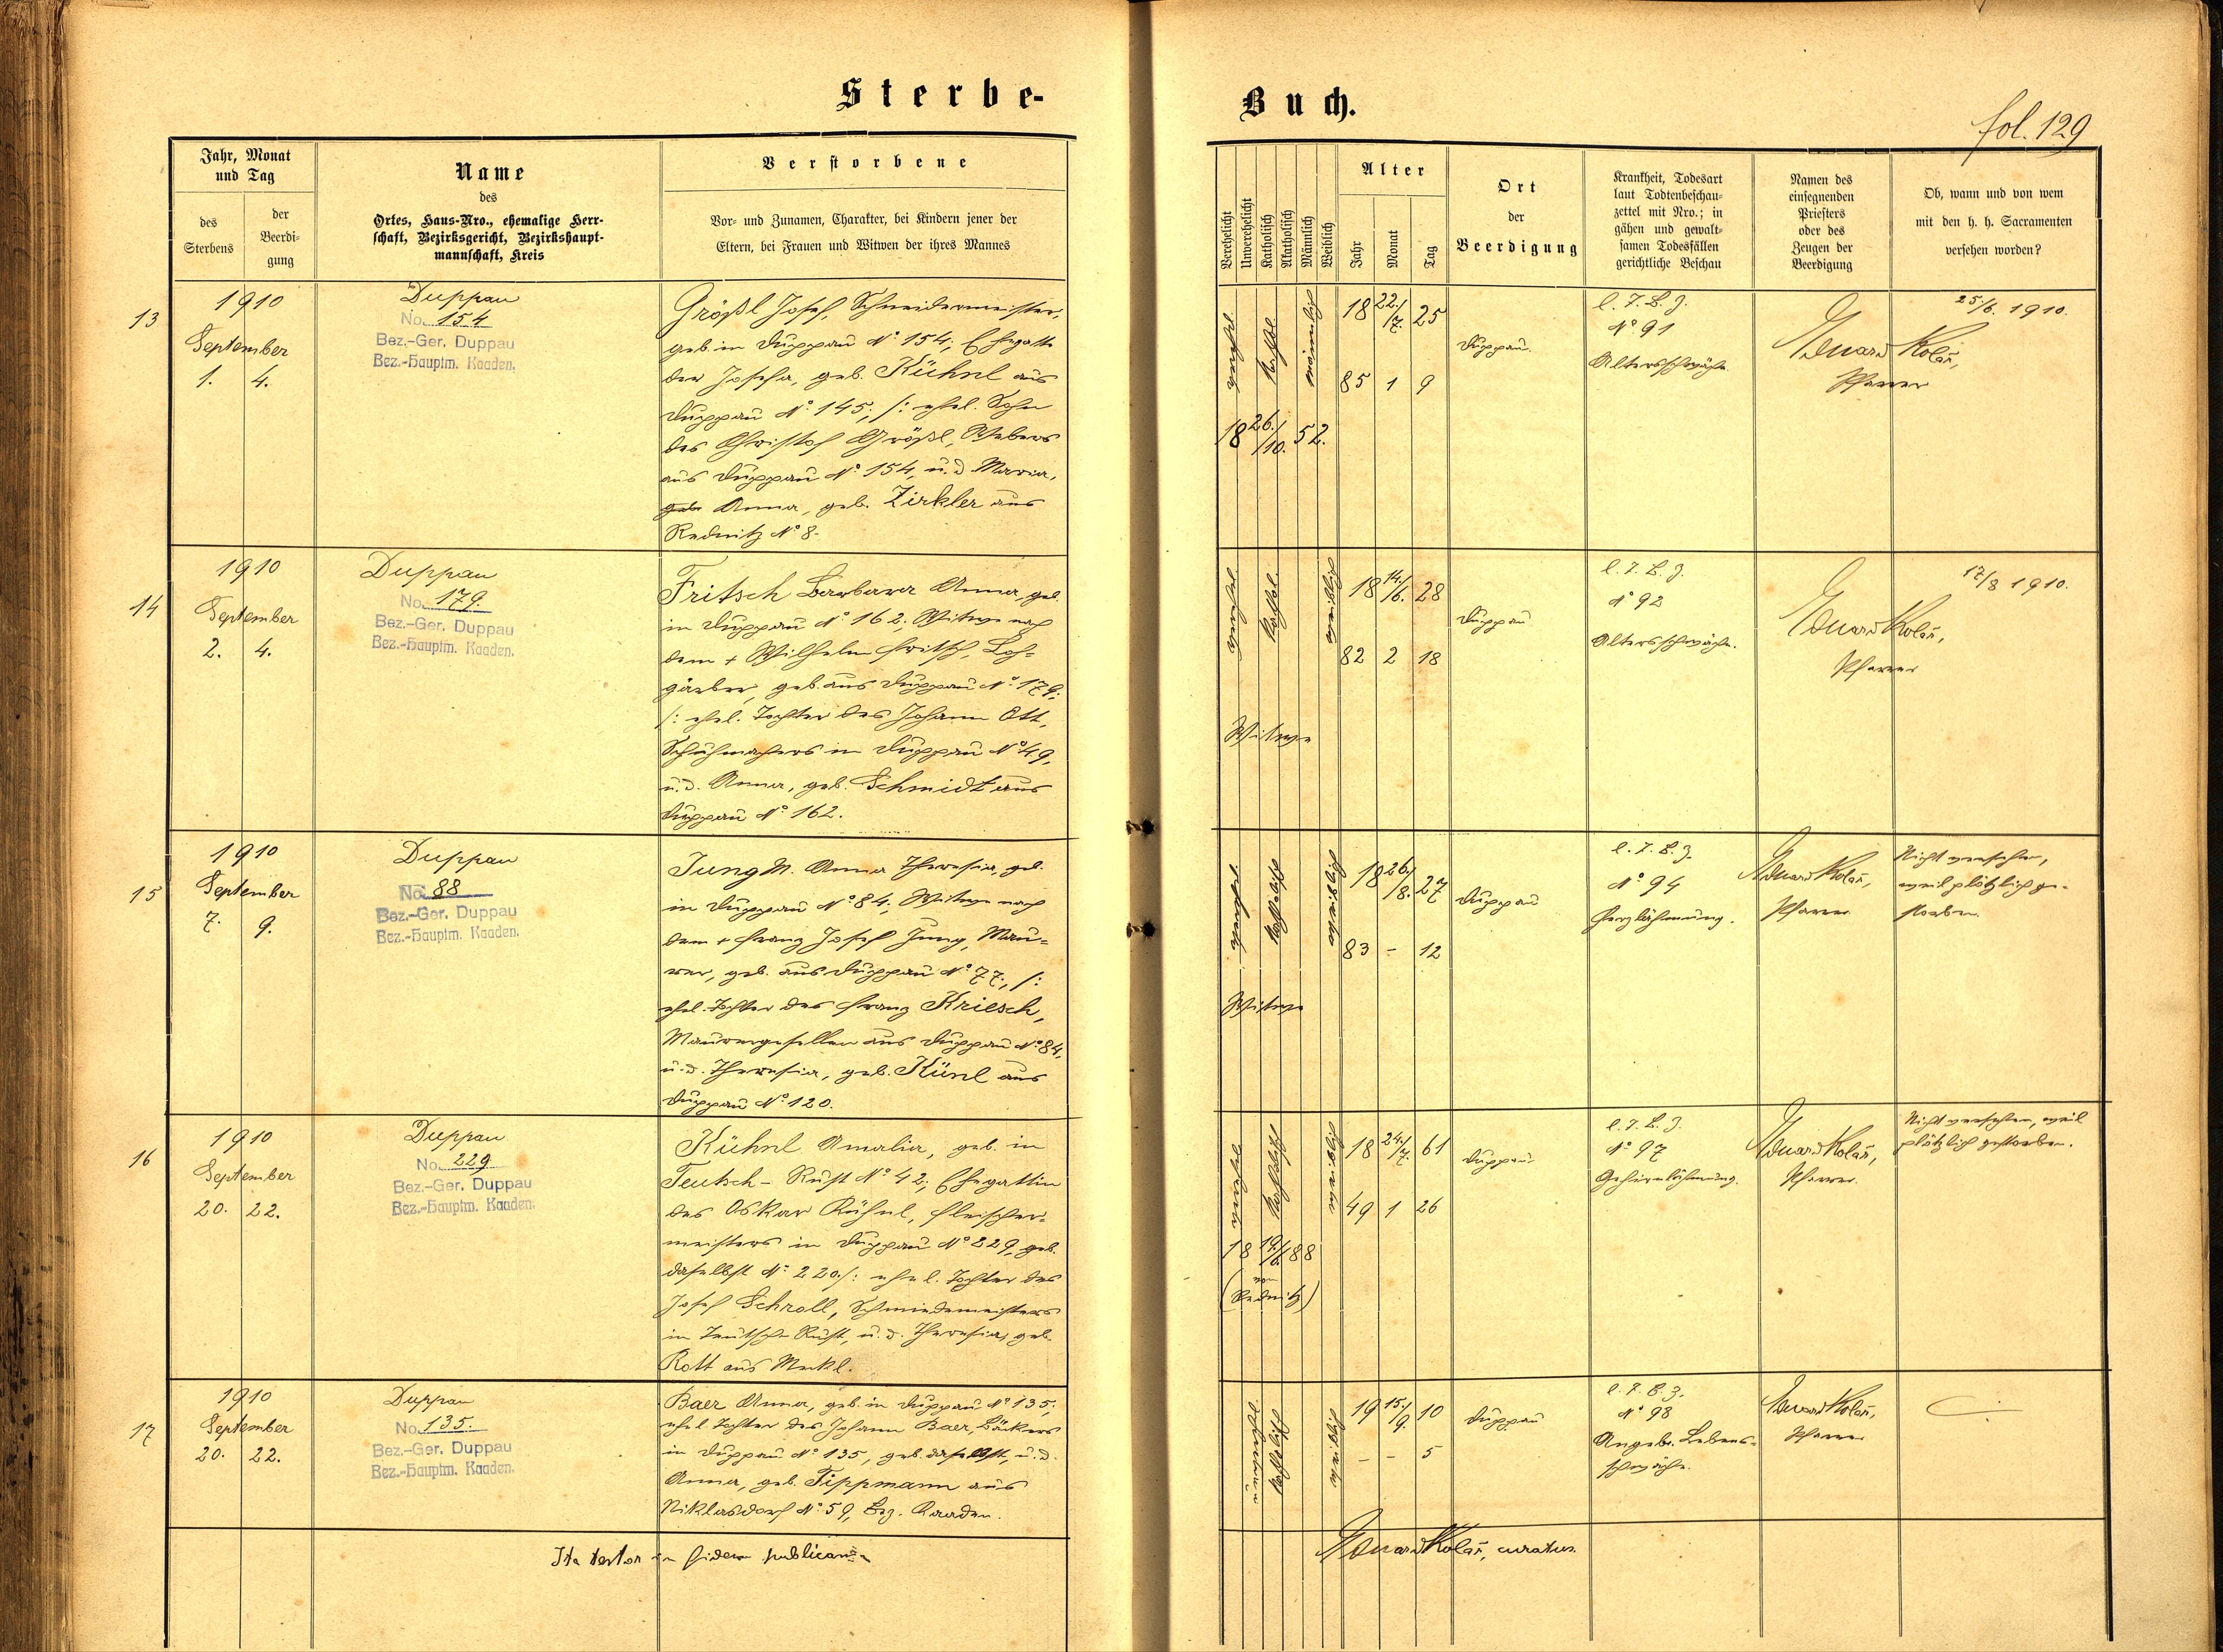 Sterbe-
Jahr, Monat
und Tag
des
Sterbens
der
Beerdi-
gung
Name
des
Ortes, Haus-Nro., ehemalige Herr-
schaft, Bezirksgericht, Bezirkshaupt-
mannschaft, Kreis
Verstorbene
Vor- und Zunamen, Charakter, bei Kindern jener der
Eltern, bei Frauen und Witwen der ihres Mannes
13
1910
September
1. 4.
Duppau
No. 154
Bez.-Ger. Duppau
Bez.-Hauptm. Kaaden.
Größl Josef, Schneidermeister,
geb. in Duppau No 154; Ehegatte
der Josefa, geb. Kühnl aus
Duppau No 145; /: ehel. Sohn
des Christof Größl, Webers
aus Duppau No 154, u. d. Maria,
geb. Anna, geb. Zirkler aus
Rednitz No 8.
14
1910
September
2. 4.
Duppau
No. 179.
Bez.-Ger. Duppau
Bez.-Hauptm. Kaaden.
Fritsch Barbara Anna, geb.
in Duppau No 162; Witwe nach
dem + Wilhelm Fritsch, Loh-
gärber, geb. aus Duppau No 179;
/: ehel. Tochter des Johann Ott,
Schuhmachers in Duppau No 49,
u. d. Anna, geb. Schmidt aus
Duppau No 162.
15
1910
September
7. 9.
Duppau
No. 88
Bez.-Ger. Duppau
Bez.-Hauptm. Kaaden.
Jung M. Anna Theresia, geb.
in Duppau No 84; Witwe nach
dem + Franz Josef Jung, Mau-
rer, geb. aus Duppau No 77; /:
ehel. Tochter des Franz Kriesch,
Maurergesellen aus Duppau No 84,
u. d. Theresia, geb. Künl aus
Duppau No 120.
16
1910
September
20. 22.
Duppau
No. 229
Bez.-Ger. Duppau
Bez.-Hauptm. Kaaden.
Kühnl Amalia, geb. in
Teutsch-Rust No 42; Ehegattin
des Oskar Kühnl, Fleischer-
meisters in Duppau No 229, geb.
daselbst No 220; /: ehel. Tochter des
Josef Schroll, Schmiedemeisters
in Teutsch-Rust, u. d. Theresia, geb.
Rott aus Meckl.
17
1910
September
20. 22.
Duppau
No. 135.
Bez.-Ger. Duppau
Bez.-Hauptm. Kaaden.
Baer Anna, geb. in Duppau No 135;
ehel. Tochter des Johann Baer, Bäckers
in Duppau No 135, geb. daselbst, u. d.
Anna, geb. Tippmann aus
Niklasdorf No 59, Bez. Kaaden.
Ita testor in fidem publicam
Buch.
fol. 129
Verehelicht
Unverehelicht
Katholisch
Akatholisch
Männlich
Weiblich
Alter
Jahr
Monat
Tag
Ort
der
Beerdigung
Krankheit, Todesart
laut Todtenbeschau-
zettel mit Nro.; in
gähen und gewalt-
samen Todesfällen
gerichtliche Beschau
Namen des
einsegnenden
Priesters
oder des
Zeugen der
Beerdigung
Ob, wann und von wem
mit den h. h. Sacramenten
versehen worden?
verehel.
Kathol.
männlich
18 22./7. 25
85 1 9
18 26./10. 52.
Duppau.
l. T. B. Z.
No 91
Altersschwäche.
Eduard Kolář,
Pfarrer
25/6. 1910.
Kathol.
weiblich
18 14./6. 28
82 2 18
Witwe
Duppau
l. T. B. Z.
No 92
Altersschwäche.
Eduard Kolář,
Pfarrer
17/8 1910.
Katholisch
weiblich
18 26./8. 27
83 - 12
Witwe
Duppau
l. T. B. Z.
No 94
Herzlähmung.
Eduard Kolář,
Pfarrer
Nicht versehen,
weil plötzlich ge-
storben.
Katholisch
weiblich
18 24./7. 61
49 1 26
18 19/6 88
(von
Rednitz)
Duppau
l. T. B. Z.
No 97
Gehirnlähmung.
Eduard Kolář,
Pfarrer.
Nicht versehen, weil
plötzlich gestorben.
Katholisch
weiblich
19 15./9. 10
- - 5
Duppau
l. T. B. Z.
No 98
Angeb. Lebens-
schwäche.
Eduard Kolář,
Pfarrer
Eduard Kolář, curatus.